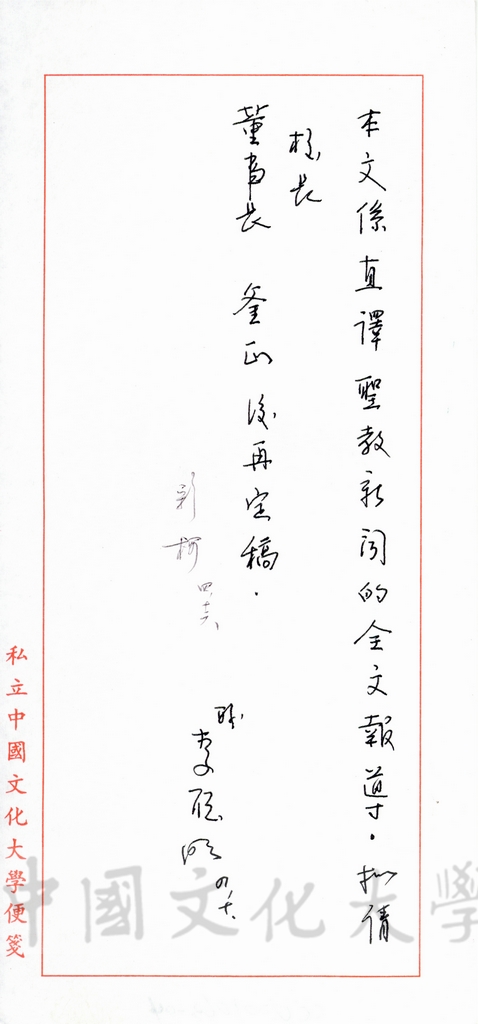 本文係直譯聖教新聞的全文報導。擬請
校長
董事長 釜正後再定稿。
彩椏
職
李聰明
私立中國文化大學便箋
中國文化大學